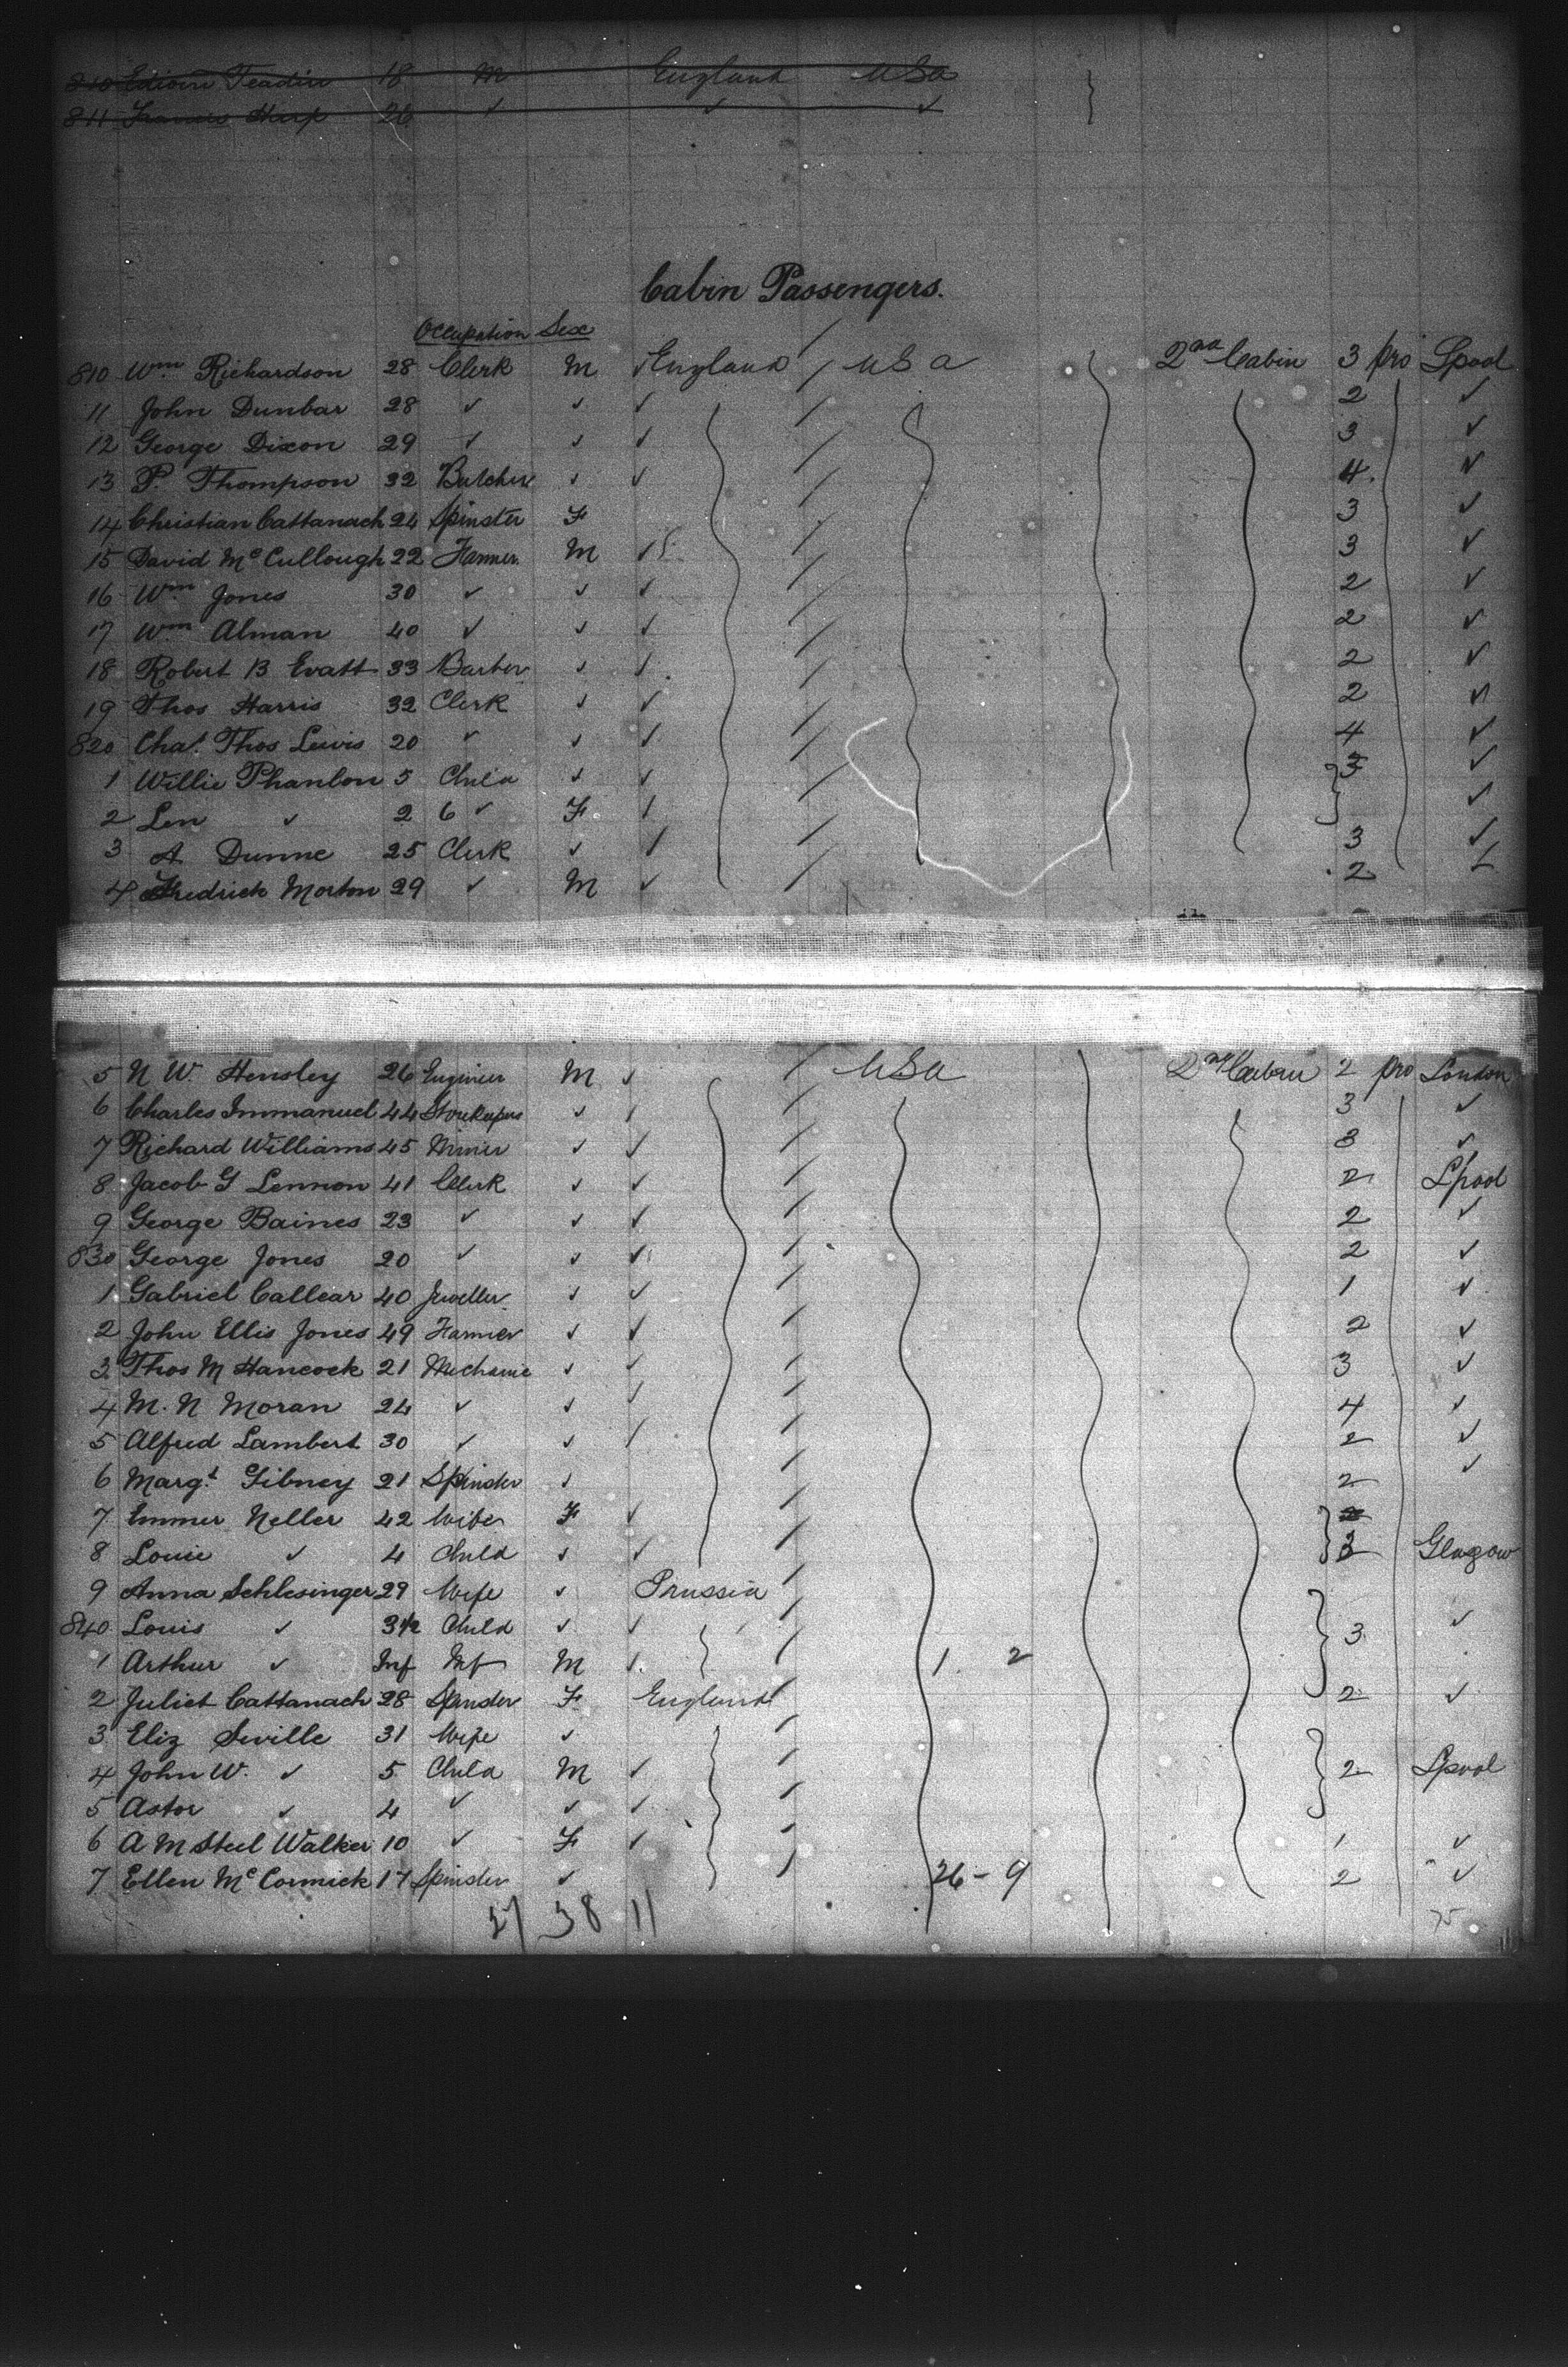 810 Edwin Teadin 18 M England USa
811 Frances Harp 26 ✓ ✓ ✓
Cabin Passengers.
Occupation Sex
810 Wm Richardson 28 Clerk M ✓ England / USa 2nd Cabin 3 pro Lpool
11 John Dunbar 28 ✓ ✓ ✓ / 2 ✓
12 George Dixon 29 ✓ ✓ ✓ / 3 ✓
13 P. Thompson 32 Butcher ✓ ✓ / 4. ✓
14 Christian Cattanach 24 Spinster F / 3 ✓
15 David McCullough 22 Farmer M ✓ / 3 ✓
16 Wm Jones 30 ✓ ✓ ✓ / 2 ✓
17 Wm Alman 40 ✓ ✓ ✓ / 2 ✓
18 Robert B Evatt 33 Barber ✓ ✓ / 2 ✓
19 Thos Harris 32 Clerk ✓ ✓ / 2 ✓
820 Chas. Thos Lewis 20 ✓ ✓ ✓ / 4 ✓
1 Willie Phanlon 5 Child ✓ ✓ / 3 ✓
2 Len ✓ 2 6 ✓ F ✓ / ✓
3 A Dunne 25 Clerk ✓ ✓ / 3 ✓
4 Fredrick Morton 29 ✓ M ✓ / 2 ✓
5 N W. Hensley 26 Engineer M ✓ / USa 2nd Cabin 2 pro London
6 Charles Immanuel 44 Storekeeper ✓ ✓ / 3 ✓
7 Richard Williams 45 Miner ✓ ✓ / 3 ✓
8 Jacob G Lennon 41 Clerk ✓ ✓ / 2 Lpool
9 George Baines 23 ✓ ✓ ✓ / 2 ✓
830 George Jones 20 ✓ ✓ ✓ / 2 ✓
1 Gabriel Callear 40 Jeweller ✓ ✓ / 1 ✓
2 John Ellis Jones 49 Farmer ✓ ✓ / 2 ✓
3 Thos M Hancock 21 Mechanic ✓ ✓ / 3 ✓
4 M. N Moran 24 ✓ ✓ ✓ / 4 ✓
5 Alfred Lambert 30 ✓ ✓ ✓ / 2 ✓
6 Margt Gibney 21 Spinster ✓ / 2 ✓
7 Emmer Neller 42 Wife F ✓ /
8 Louie ✓ 4 Child ✓ ✓ / 3 Glasgow
9 Anna Schlesinger 29 Wife ✓ Prussia /
840 Louis ✓ 3 1/2 Child ✓ ✓ / 3 ✓
1 Arthur ✓ Inf Inf M ✓ / 1. 2
2 Juliet Cattanach 28 Spinster F England 2 ✓
3 Eliz Seville 31 Wife ✓ /
4 John W. ✓ 5 Child M ✓ / 2 Lpool
5 Astor ✓ 4 ✓ ✓ ✓ /
6 A M Steel Walker 10 ✓ F ✓ / 1 ✓
7 Ellen McCormick 17 Spinster ✓ / 26 - 9 2 ✓
27 38 11 75